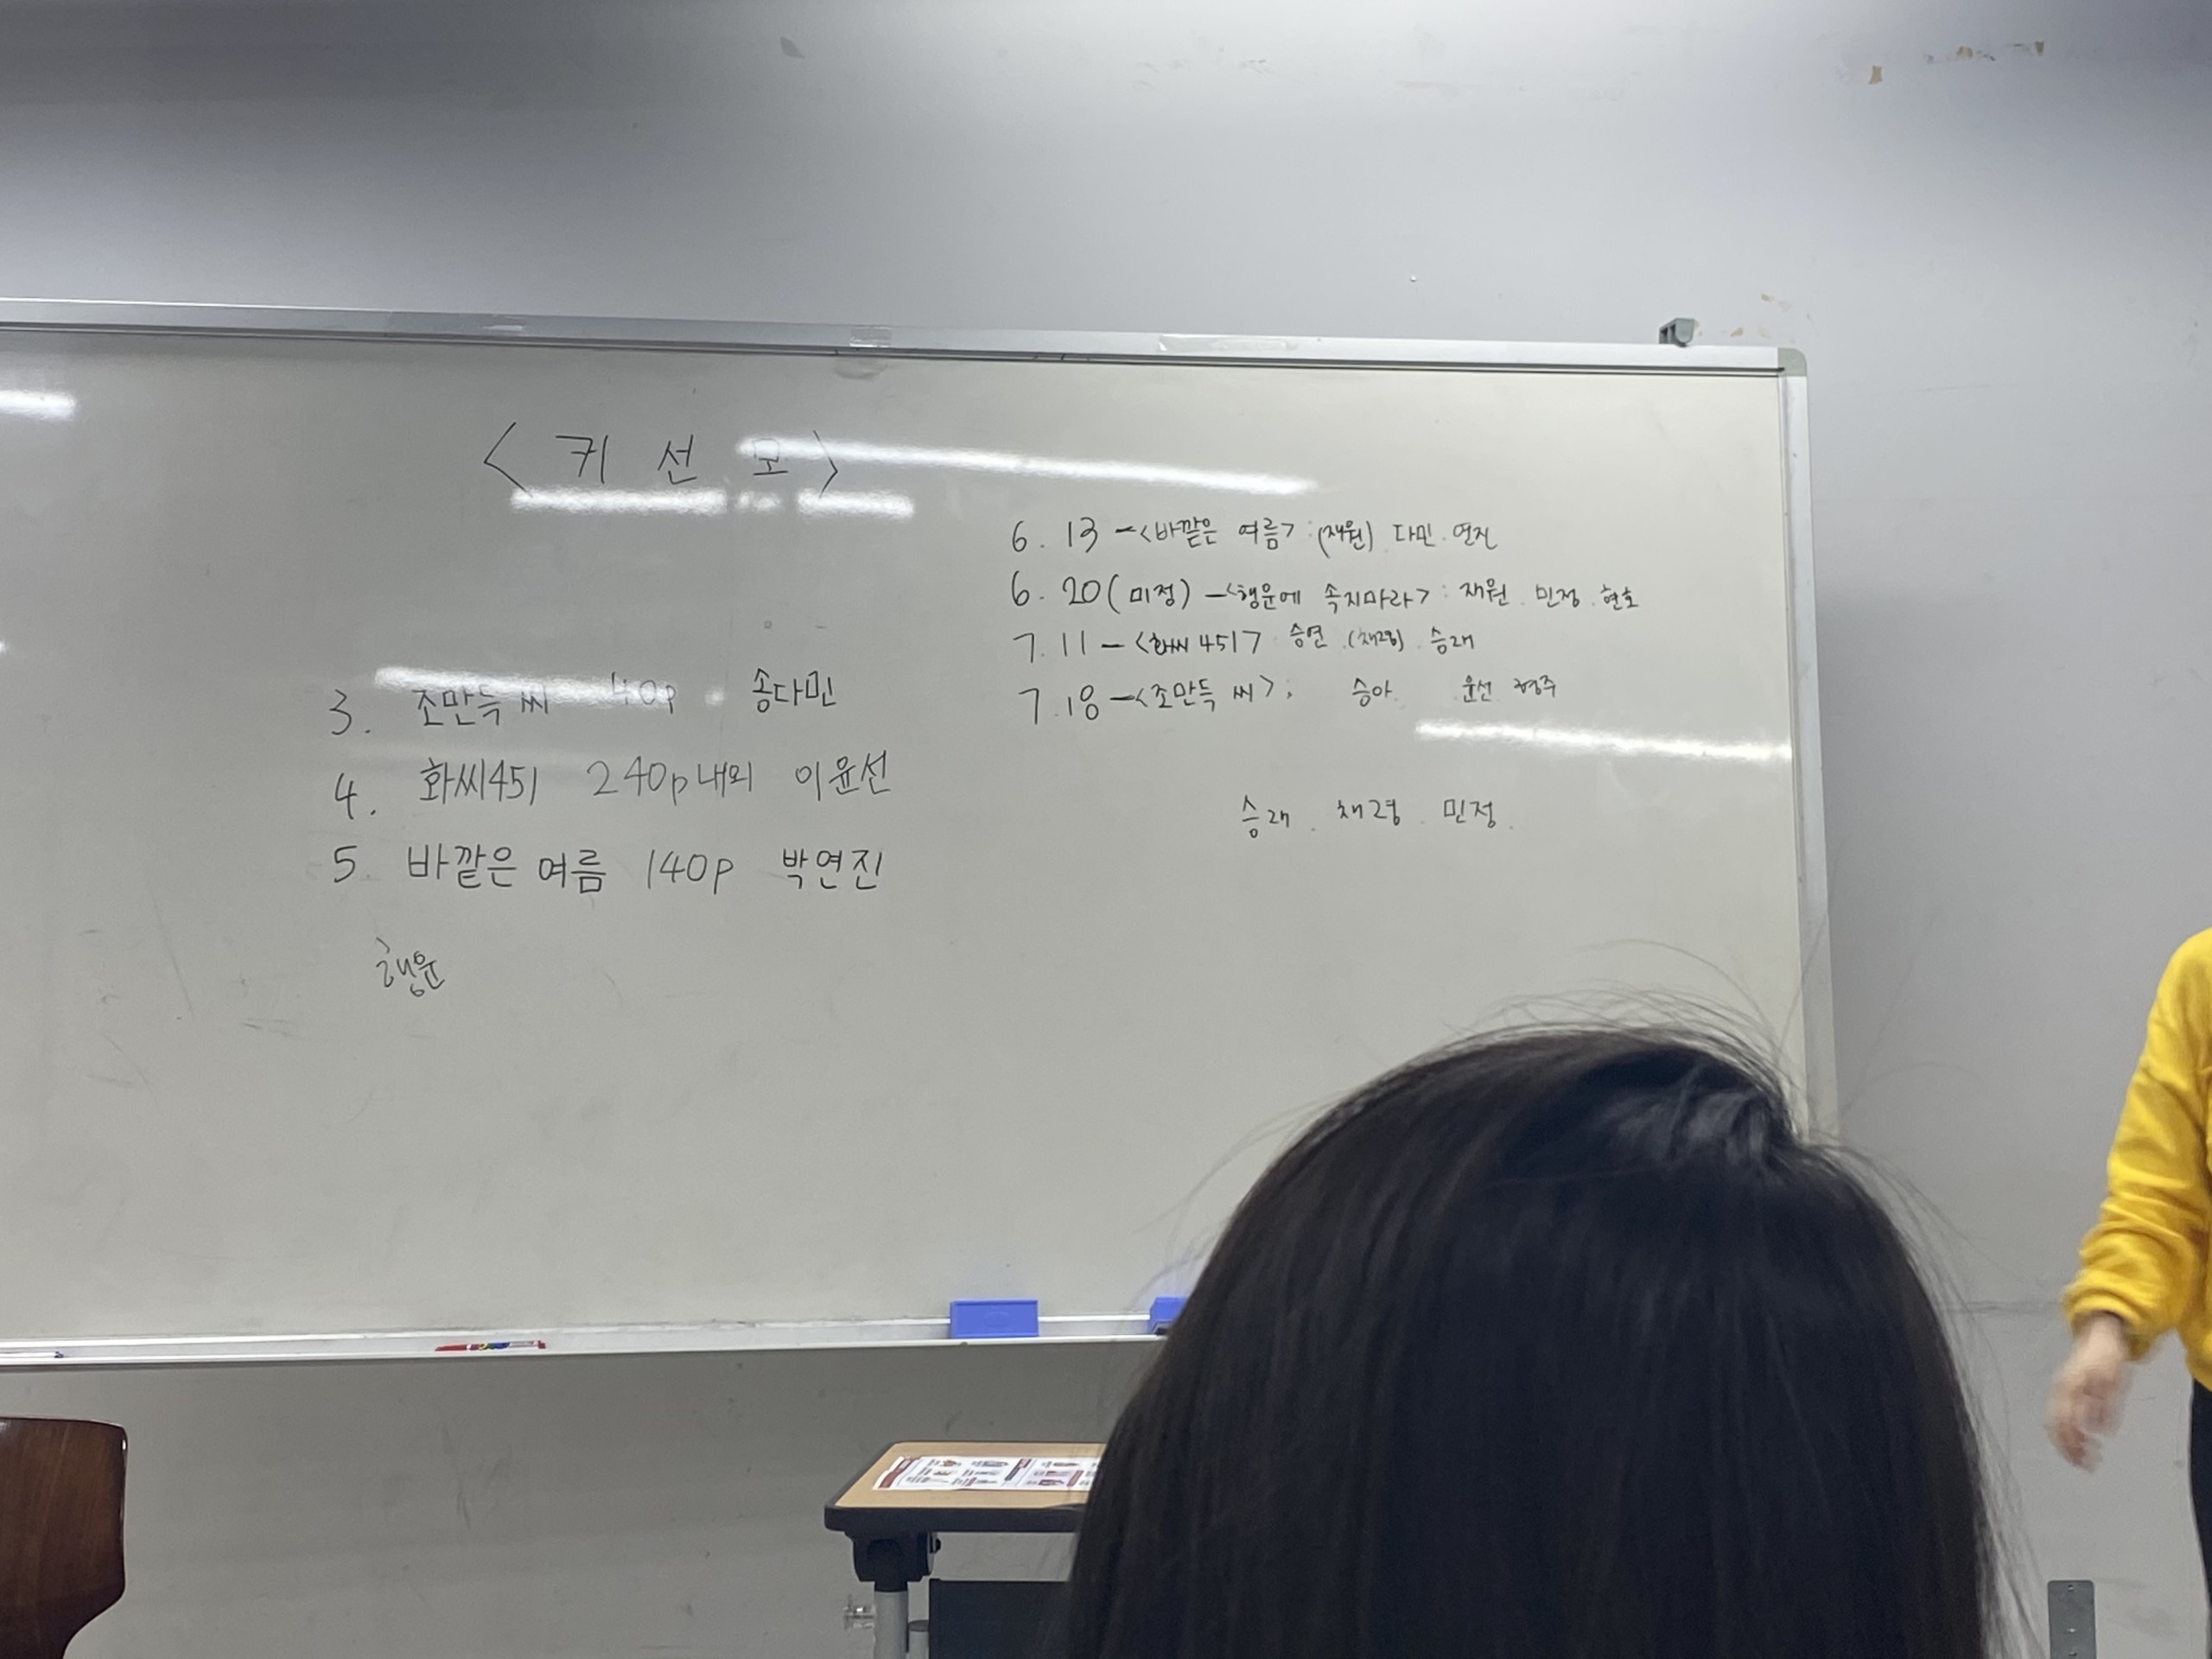 <키 선 모>
3. 조만득 씨 40p 송다민
4. 화씨451 240p내외 이윤선
5. 바깥은 여름 140p 박연진
행운
6. 13 - <바깥은 여름> : (재원) 다민. 연진
6. 20(미정) - <행운에 속지마라> : 재원. 민정. 현호
7. 11 - <화씨 451> 승연. (채령). 승래
7. 18 - <조만득 씨> : 승아. 윤선. 형주
승래. 채령. 민정.